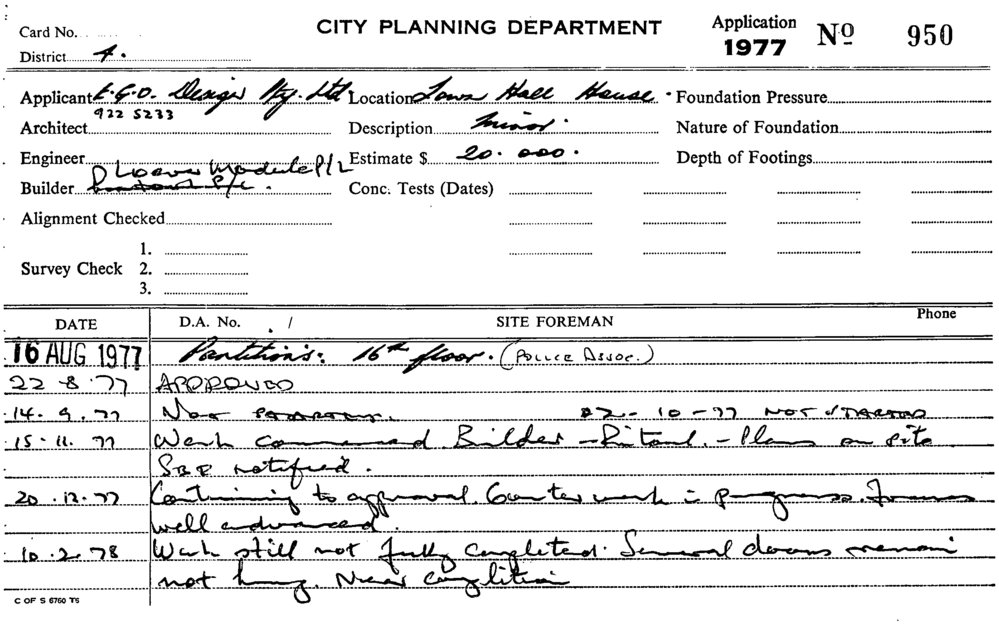 Card No. CITY PLANNING DEPARTMENT Application 1977 Nº 950
District 4.
Applicant E.G.O. Design Pty. Ltd Location Town Hall House. Foundation Pressure
922 5233
Architect Description minor. Nature of Foundation
Engineer Estimate $ 20.000. Depth of Footings
Module P/L
Builder Conc. Tests (Dates)
Alignment Checked
1.
Survey Check 2.
3.
DATE D.A. No. / SITE FOREMAN Phone
16 AUG 1977 Partitions: 16th floor. (POLICE ASSOC.)
22-8-77 APPROVED
14.9.77 NOT STARTED. 22-10-77 NOT STARTED
15-11.77 Work commenced Builder - - Plans on site
notified.
20.12.77 to approval work in progress. Frames
well advanced.
10.2.78 Work still not fully completed. Several doors remain
not hung. Near completion
C OF S 6760 T5